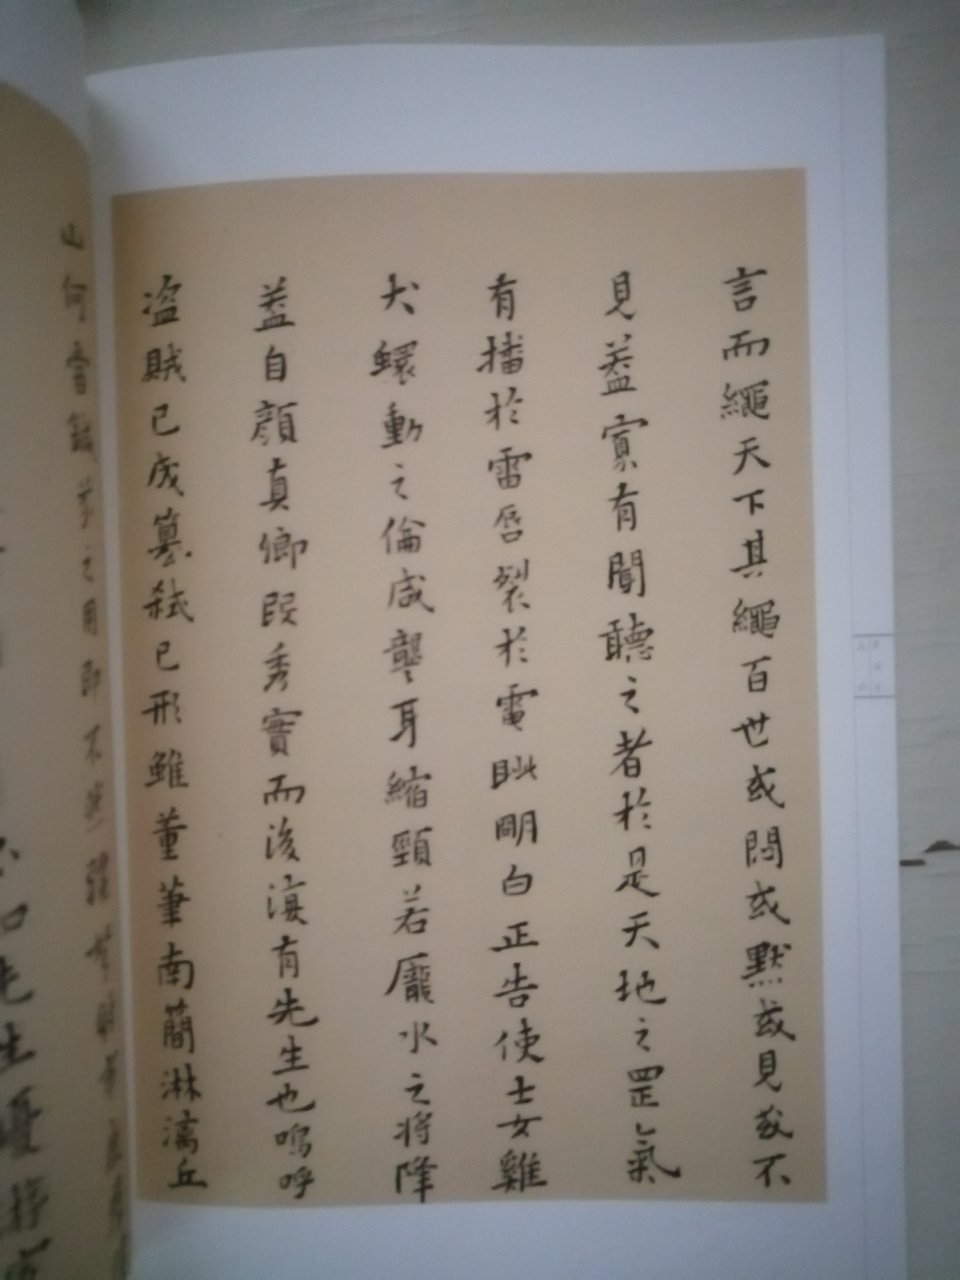 言而繩天下其繩百世或問或默或見或不
見蓋寡有聞聽之者於是天地之罡氣
有播於雷唇裂於電眦明白正告使士女雞
犬蠉動之倫咸聾耳縮頸若龎水之將降
蓋自顏真卿既秀實而後湏有先生也嗚呼
盗賊已成篡弒已形雖董筆南簡淋漓丘
山何
之用即不